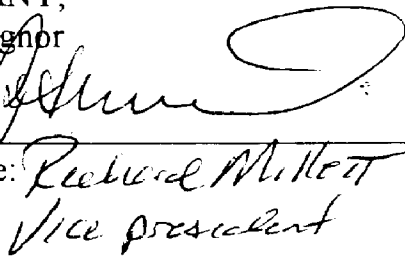 ANT,
gnor
e: Richard Millett
Vice president